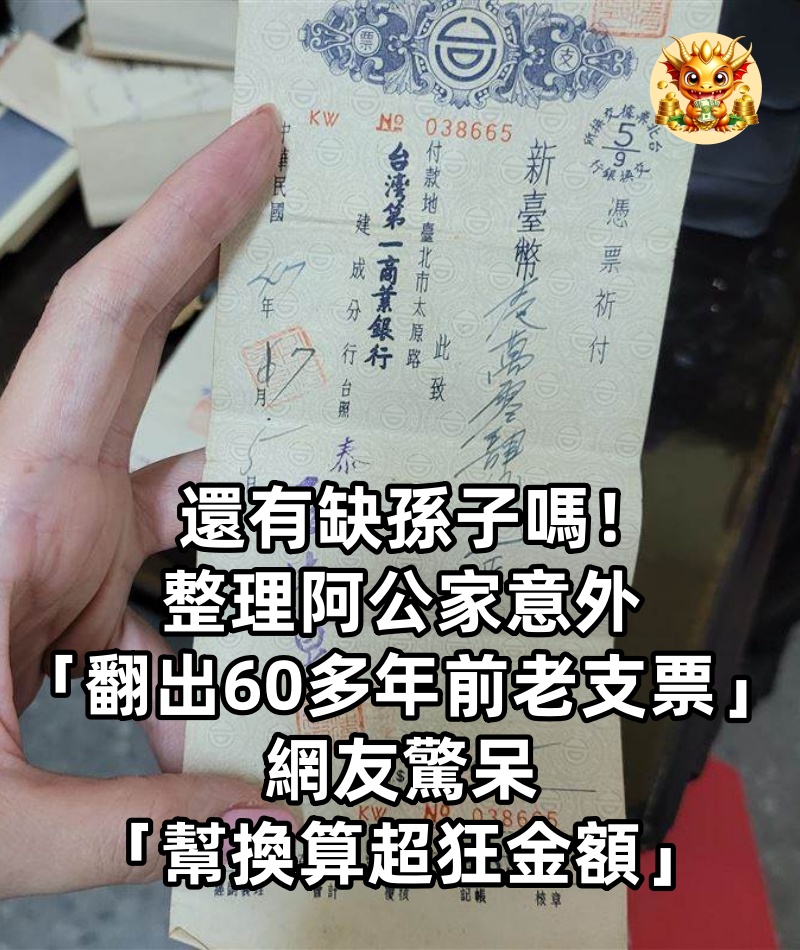 票
支
KW № 038665
5
9
憑票祈付
新臺幣壹萬零
此致
付款地臺北市太原路
台灣第一商業銀行
建成分行台照
中華民國
年
月
還有缺孫子嗎！
整理阿公家意外
「翻出60多年前老支票」
網友驚呆
「幫換算超狂金額」
$
KW № 038665
會計
記帳
核章